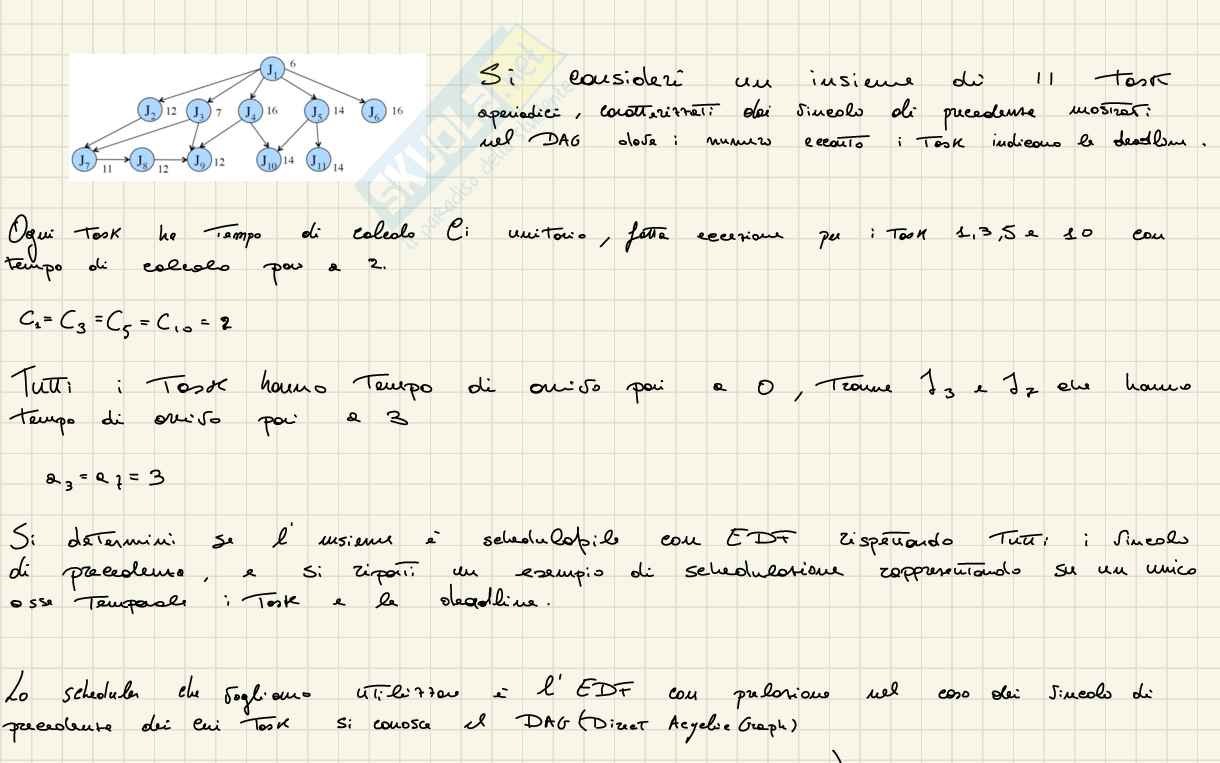 J1 6
J2 12 J3 7 J4 16 J5 14 J6 16
J7 11 J8 12 J9 12 J10 14 J11 14
Si consideri un insieme di 11 Task
aperiodici, caratterizzati dai vincolo di precedenza mostrati
nel DAG dove i numero accanto i Task indicano le deadline.
Ogni Task ha Tempo di calcolo Ci unitario, fatta eccezione per i Task 1,3,5 e 10 con
tempo di calcolo pari a 2.
C1 = C3 = C5 = C10 = 2
Tutti i Task hanno Tempo di arrivo pari a 0, Tranne J3 e J7 che hanno
tempo di arrivo pari a 3
a3 = a7 = 3
Si determini se l'insieme è schedulabile con EDF rispettando Tutti i vincolo
di precedenza, e si riporti un esempio di schedulazione rappresentando su un unico
asse Temporale i Task e le deadline.
Lo scheduler che vogliamo utilizzare è l'EDF con prelazione nel caso dei vincolo di
precedenza dei cui Task si conosce il DAG (Direct Acyclic Graph)
SKUOLA.net
il paradiso dello studente